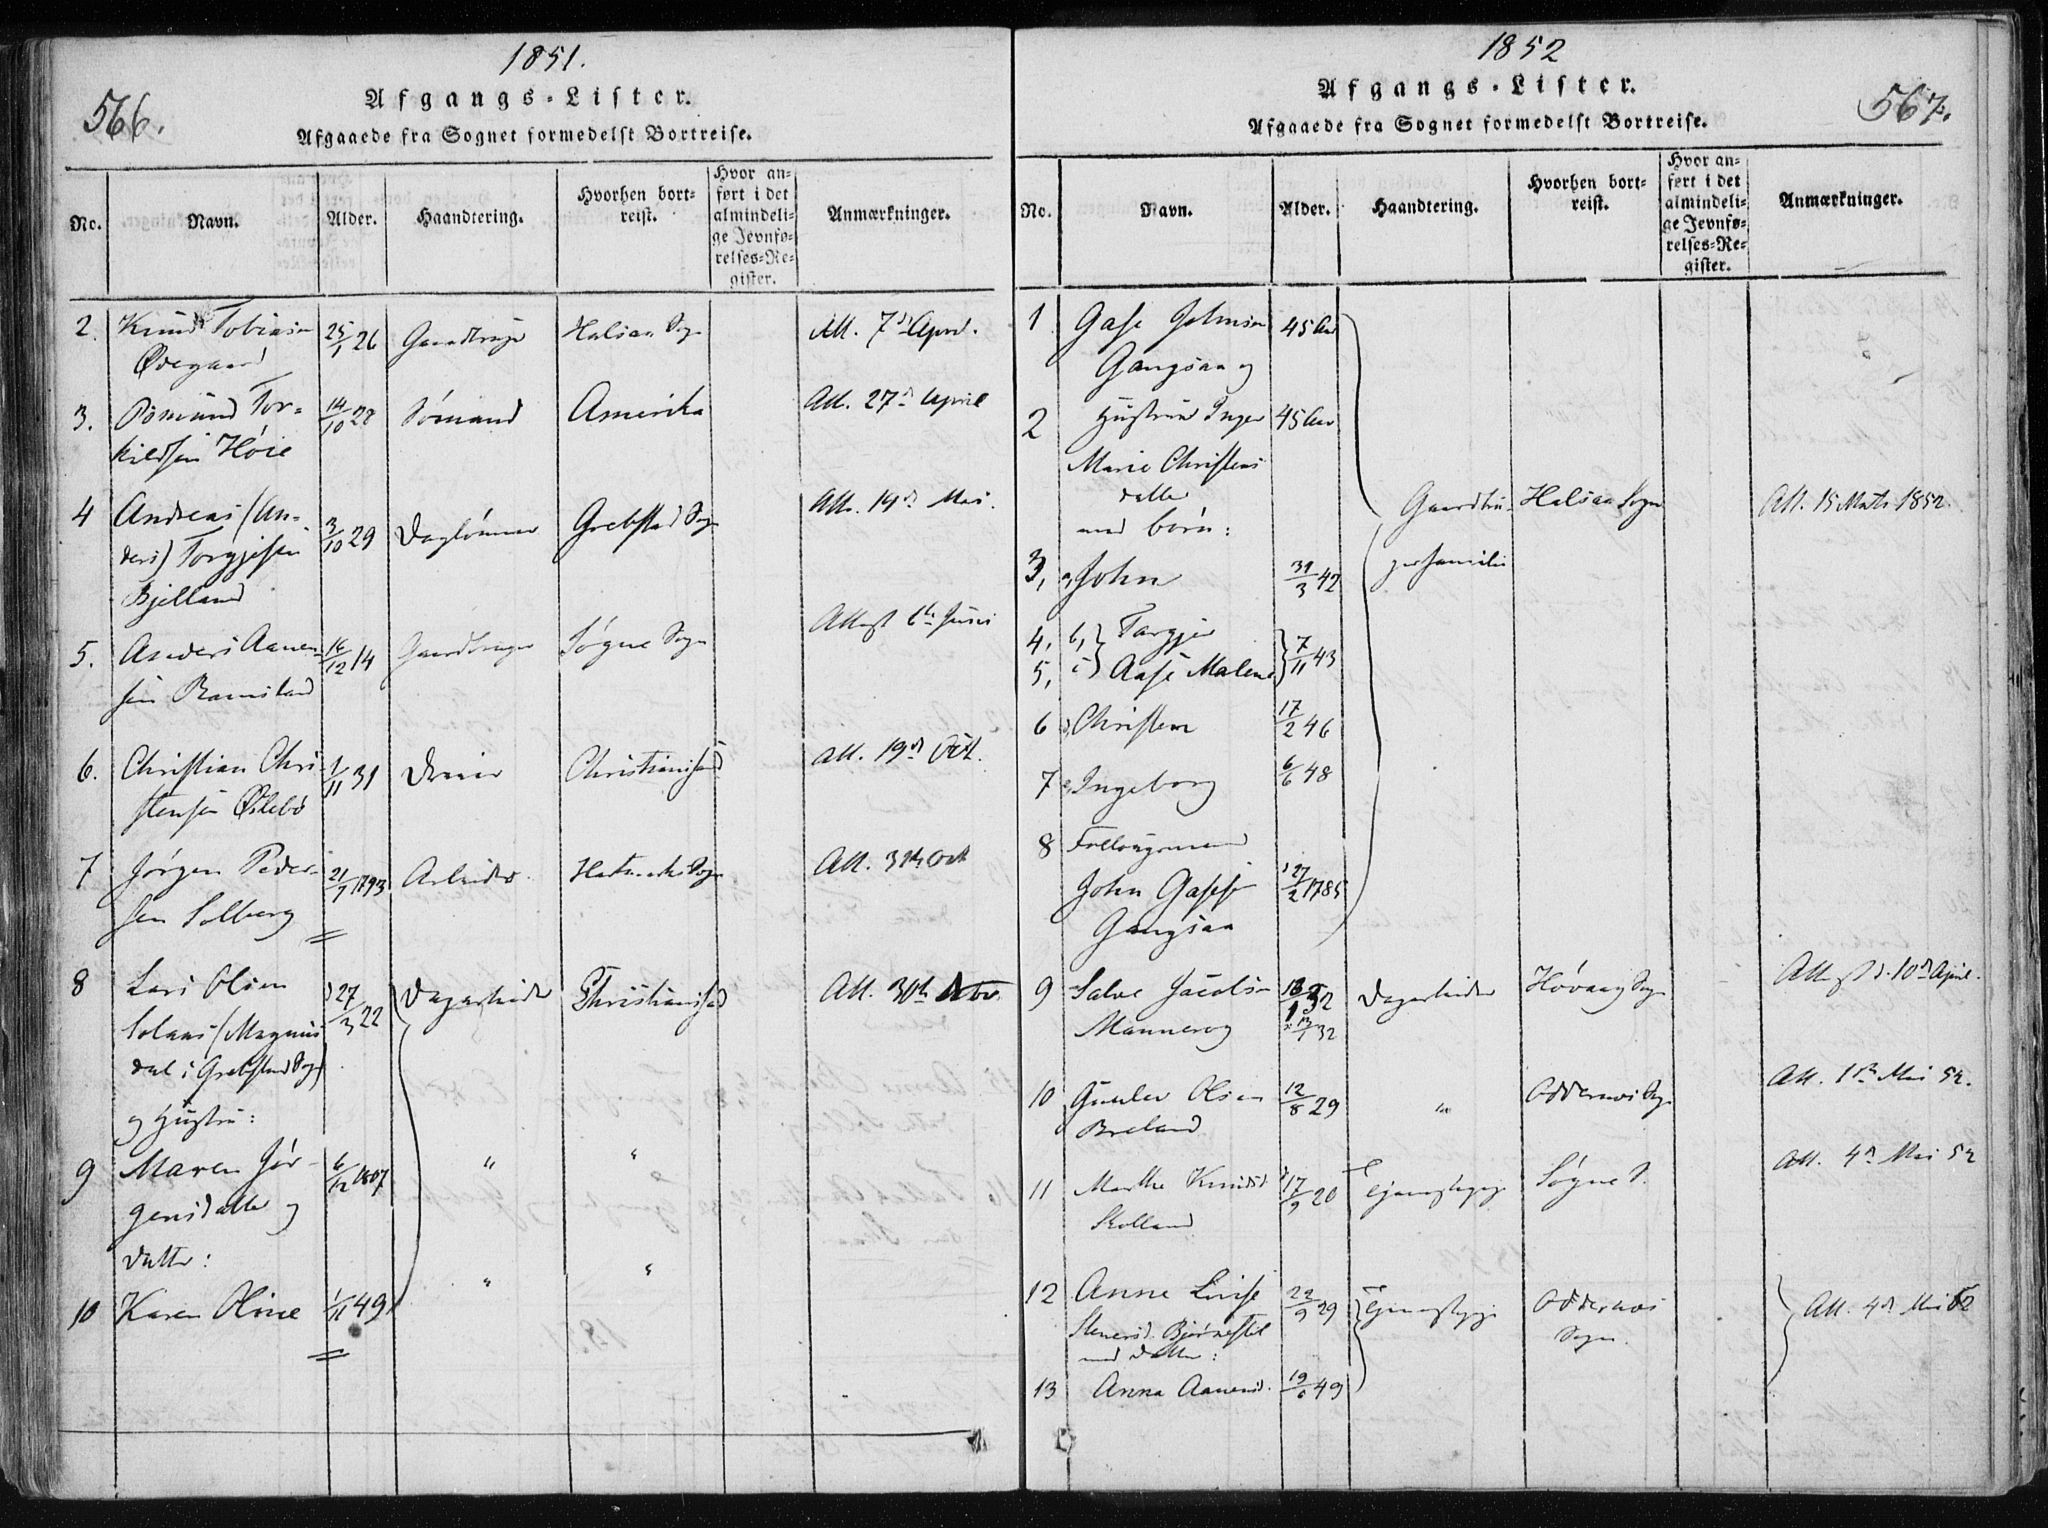 1851.
566.
Afgangs-Lister.
Afgaaede fra Sognet formedelst Bortreise.
No. Navn. Alder. Haandtering. Hvorhen bortreist. Hvor anført i det almindelige Jevnførelses-Register. Anmærkninger.
2. Knud Tobiasen 25/1 26 Halsaa Sogn Att. 7de April.
Ødegaard
3. Osmund Tor= 14/10 28 Sømand Amerika Att. 27de April
kildsen Höie
4 Andreas (An- 3/10 29 Daglönner Grebstad Sogn Att. 19de Mai.
ders) Torgjesen
Bjelland
5. Anders Aanen- 16/12 14 Gaardbruger Søgne Sogn Attest 6te Juni
sen Ramsland
6. Christian Chri- 1/11 31 Dreier Christiansand Att. 19de Oct.
stensen Øslebø
7 Jørgen Peder- 21/7 1793 Arbeider Sogn Att. Oct
sen Solberg
8 Lars Olsen 27/3 22 Dagarbeider Christiansand Att. 30te Nov
Solaas (Magnus
dal i Grebstad Sogn)
og Hustru:
9 Maren Jør- 6/12 1807 " "
gensdatter og
Datter:
10 Karen Oline 1/11 49 " "
1852
567.
Afgangs-Lister.
Afgaaede fra Sognet formedelst Bortreise.
No. Navn. Alder. Haandtering. Hvorhen bortreist. Hvor anført i det almindelige Jevnførelses-Register. Anmærkninger.
1 Gase Johnsen 45 Aar
Gangsaa og
2 Hustrue Inger 45 Aar
Marie Christens
datter
med børn: Gaardbru- Halsaa Sogn Att. 15 Marts 1852.
3, a, John 31/3 42 gerfamilie
4, b, Torgjer
5, c, Aase Malene 7/11 43
6 d, Christen 17/2 46
7 e, Ingeborg 6/6 48
8 Follougsmand
John Gases 27/2 1785
Gangsaa
9 Salve Jacobsen 32 Dagarbeider Høvaag Sogn Attest d. 10de April.
Mannevog 32
10 Gunder Olsen 12/8 29 " Oddernes Sogn Att. 1ste Mai 52.
Breland
11 Marthe Knudsd 17/9 20 Tjenestepige Søgne S. Att. 4de Mai 52
Skolland
12 Anne Lovise 22/9 29 Tjenestepige Oddernes Att. 4de Mai 52
Stenersd. Bjørnestøl Sogn
med Datter:
13 Anna Aanensd. 19/6 49